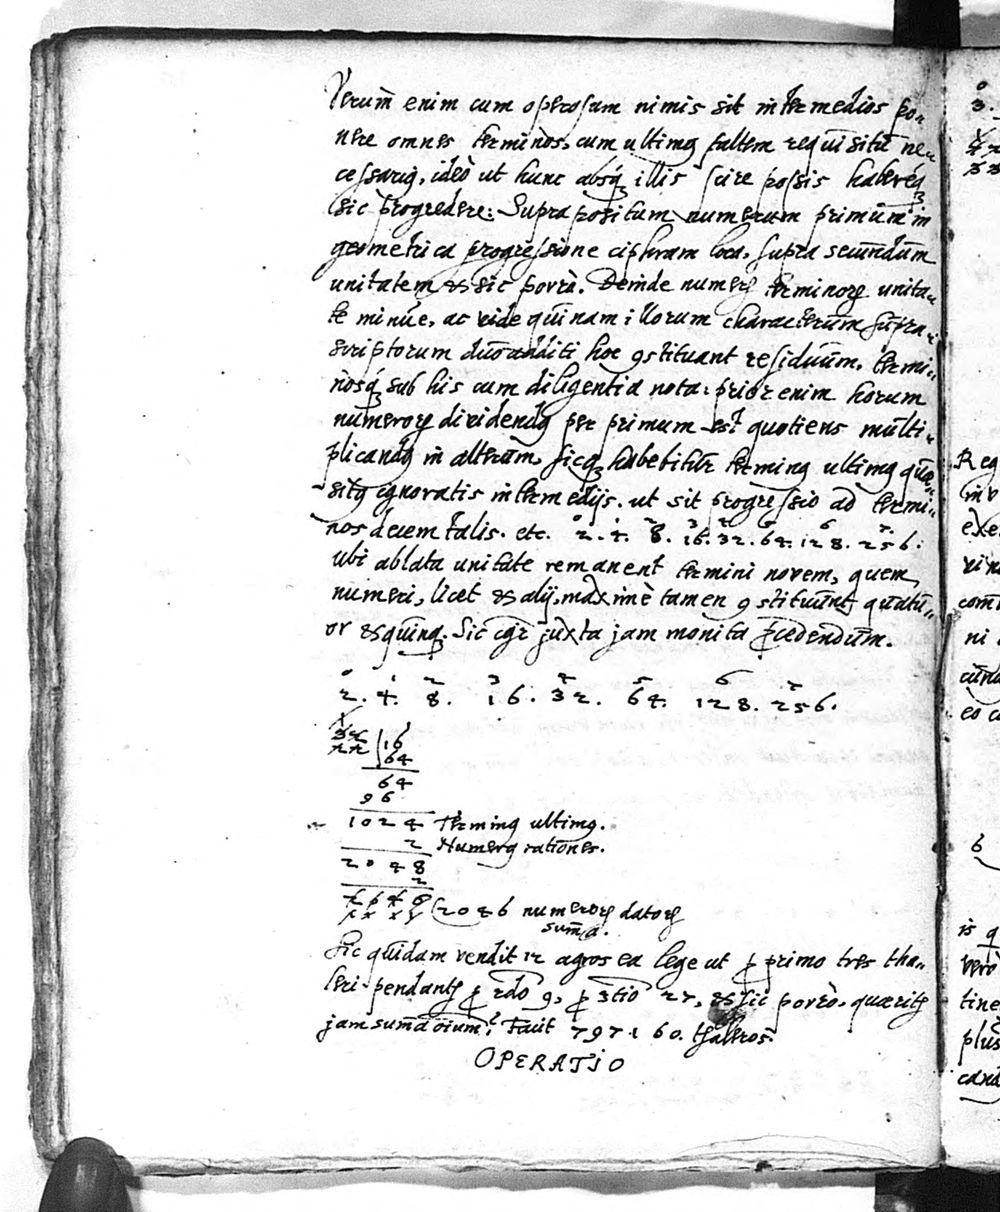 Verum̄ enim cum operosum nimis sit intermedios po-
nere omnes terminos, cum ultimꝰ saltem requisitū ne-
cessariꝰ, ideò ut hunc absqꝫ illis scire possis habereqꝫ
sic progredere: Supra positum numerum primum in
geometrica progressione ciphram loca, supra secundum
unitatem & sic porrò. Deinde numerꝝ terminorꝝ unita-
te minue, ac vide quinam illorum characterum supra-
scriptorum duo additi hoc ꝯstituant residuum, termi-
nosqꝫ sub his cum diligentia nota: prior enim horum
numerorꝝ dividendꝰ per primum est quotiens multi-
plicandꝰ in alterum, sicqꝫ habebitur terminꝰ ultimꝰ quæ-
sitꝰ ignoratis intermedijs. ut sit progressio ad termi-
nos decem talis. etc. 2. 4. 8. 16. 32. 64. 128. 256.
0 1 2 3 4 5 6 7
ubi ablata unitate remanent termini novem, quem
numeri, licet & alij, maximè tamen ꝯstituunt quatu-
or & quinqꝫ. Sic igr̄ juxta jam monita ꝓcedendum.
0 1 2 3 4 5 6 7
2. 4. 8. 16. 32. 64. 128. 256.
1
32 | 16
22 | 64
64
96
1024 Terminꝰ ultimꝰ.
2 Numerꝰ rationis.
2048
2
(2046 numerorꝝ datorꝝ
summa.
Sic quidam vendit 12 agros ea lege ut ꝓ primo tres tha-
leri pendantꝝ ꝓ 2do 9, ꝓ 3tio 27, & sic porrò, quæritꝝ
jam summa oīum? Facit 797160. thaleros.
OPERATIO
6